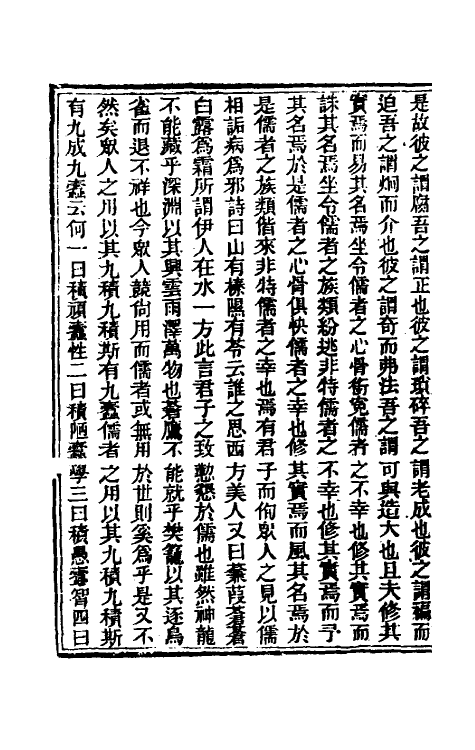 是故彼之謂腐吾之謂正也彼之謂瑣碎吾之謂老成也彼之謂褊而
迫吾之謂炯而介也彼之謂奇而弗法吾之謂可與造大也且夫修其
實焉而易其名焉坐令儒者之心骨銜寃儒者之不幸也修其實焉而
誅其名焉坐令儒者之族類紛逃非特儒者之不幸也修其實焉而予
其名焉於是儒者之心骨俱快儒者之幸也修其實焉而風其名焉於
是儒者之族類偕來非特儒者之幸也焉有君子而徇眾人之見以儒
相詬病為邪詩曰山有榛隰有苓云誰之思西方美人又曰蒹葭蒼蒼
白露為霜所謂伊人在水一方此言君子之致懃懇於儒也雖然神龍
不能藏乎深淵以其興雲雨澤萬物也蒼鷹不能就乎樊籠以其逐鳥
雀而退不祥也今眾人饒尚用而儒者或無用於世則奚為乎是又不
然矣眾人之用以其九積九積斯有九蠹儒者之用以其九積九積斯
有九成九蠹云何一曰積頑蠹性二曰積陋蠹學三曰積愚蠹智四曰